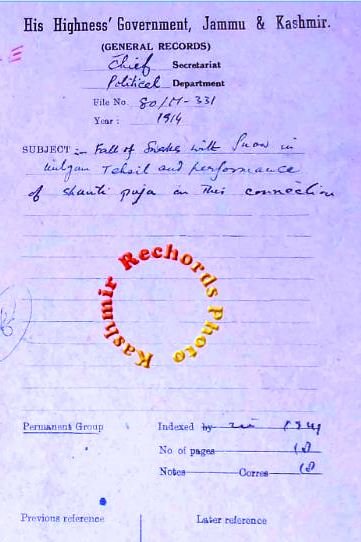 His Highness' Government, Jammu & Kashmir.
(GENERAL RECORDS)
Chief Secretariat
Political Department
File No 80/M-331
Year: 1914
SUBJECT :- Fall of Snakes with Snow in
Tehsil and performance
of shanti puja in this connection
Kashmir Rechords Photo
Permanent Group
Indexed by
No of pages 18
Notes Corres 18
Previous reference
Later reference